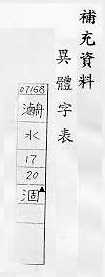 補充資料
異體字表
07168
水
17
20
涸